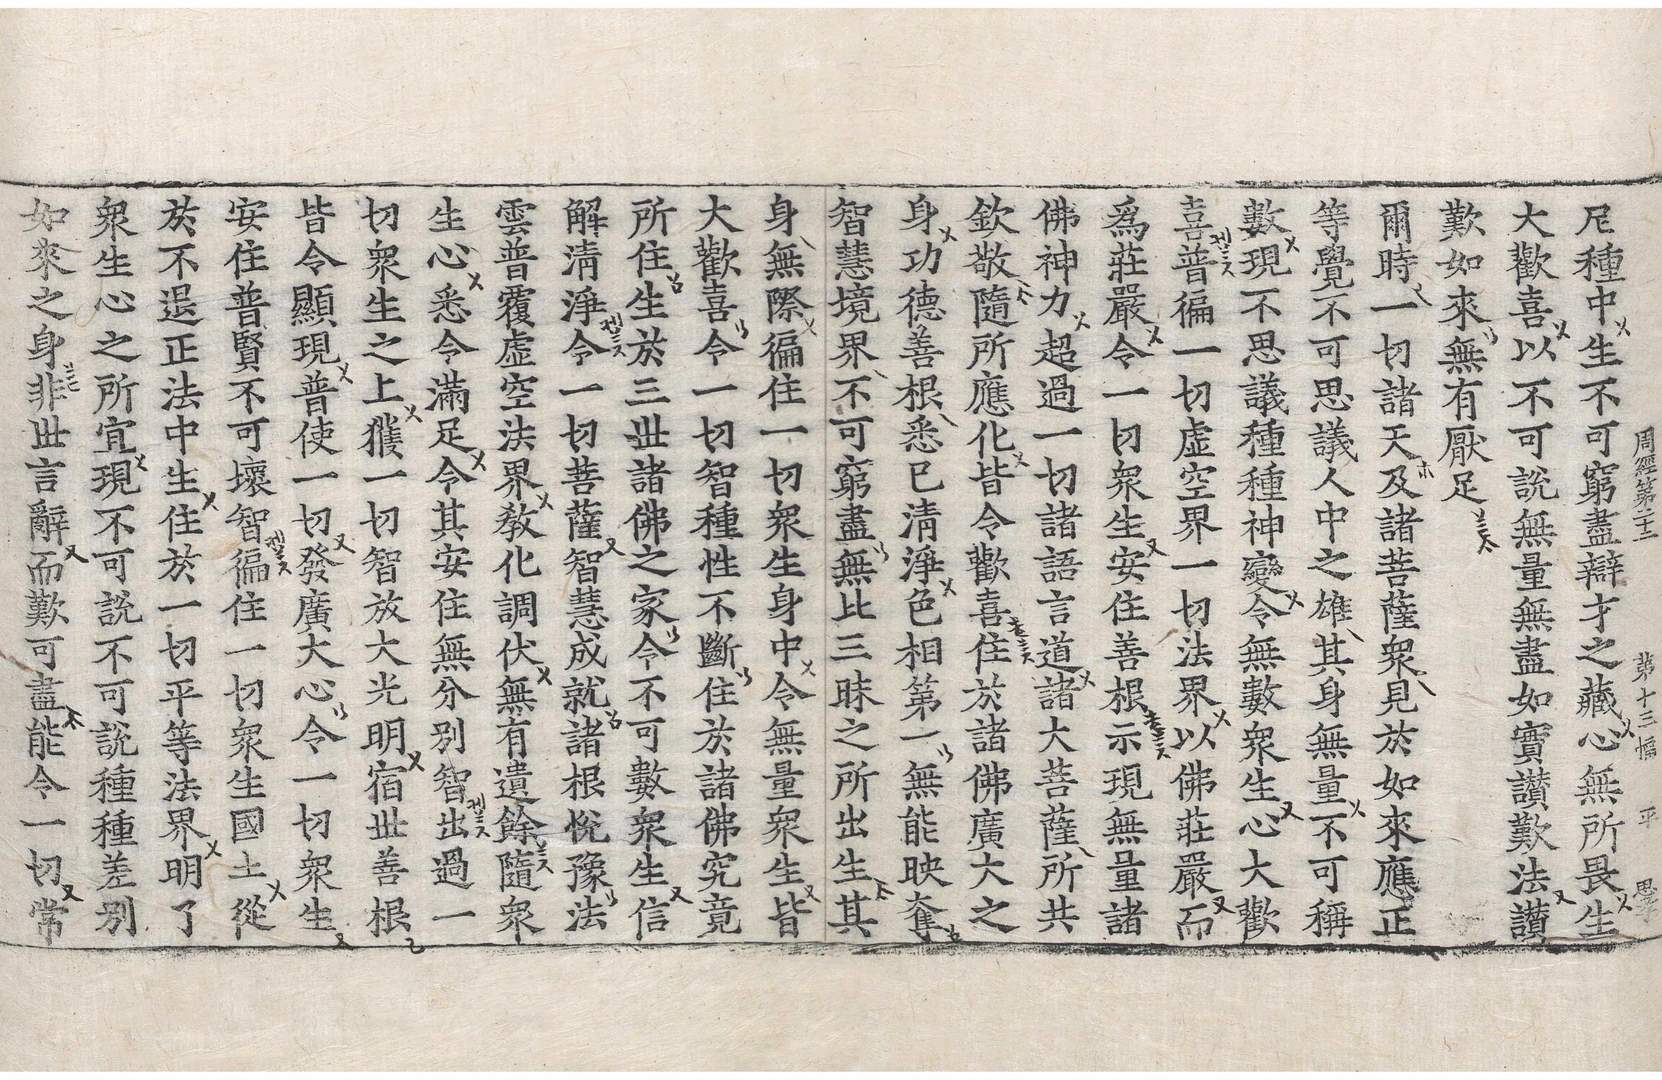 周經第二十二 第十三幅 平
尼種中生不可窮盡辯才之藏心無所畏生
大歡喜以不可說無量無盡如實讃歎法讃
歎如來無有厭足
爾時一切諸天及諸菩薩衆見於如來應正
等覺不可思議人中之雄其身無量不可稱
數現不思議種種神變令無數衆生心大歡
喜普徧一切虛空界一切法界以佛莊嚴而
爲莊嚴令一切衆生安住善根示現無量諸
佛神力超過一切諸語言道諸大菩薩所共
欽敬隨所應化皆令歡喜住於諸佛廣大之
身功德善根悉已淸淨色相第一無能映奪
智慧境界不可窮盡無比三昧之所出生其
身無際徧住一切衆生身中令無量衆生皆
大歡喜令一切智種性不斷住於諸佛究竟
所住生於三世諸佛之家令不可數衆生信
解淸淨令一切菩薩智慧成就諸根悅豫法
雲普覆虛空法界敎化調伏無有遺餘隨衆
生心悉令滿足令其安住無分別智出過一
切衆生之上獲一切智放大光明宿世善根
皆令顯現普使一切發廣大心令一切衆生
安住普賢不可壞智徧住一切衆生國土從
於不退正法中生住於一切平等法界明了
衆生心之所宜現不可說不可說種種差別
如來之身非世言辭而歎可盡能令一切常